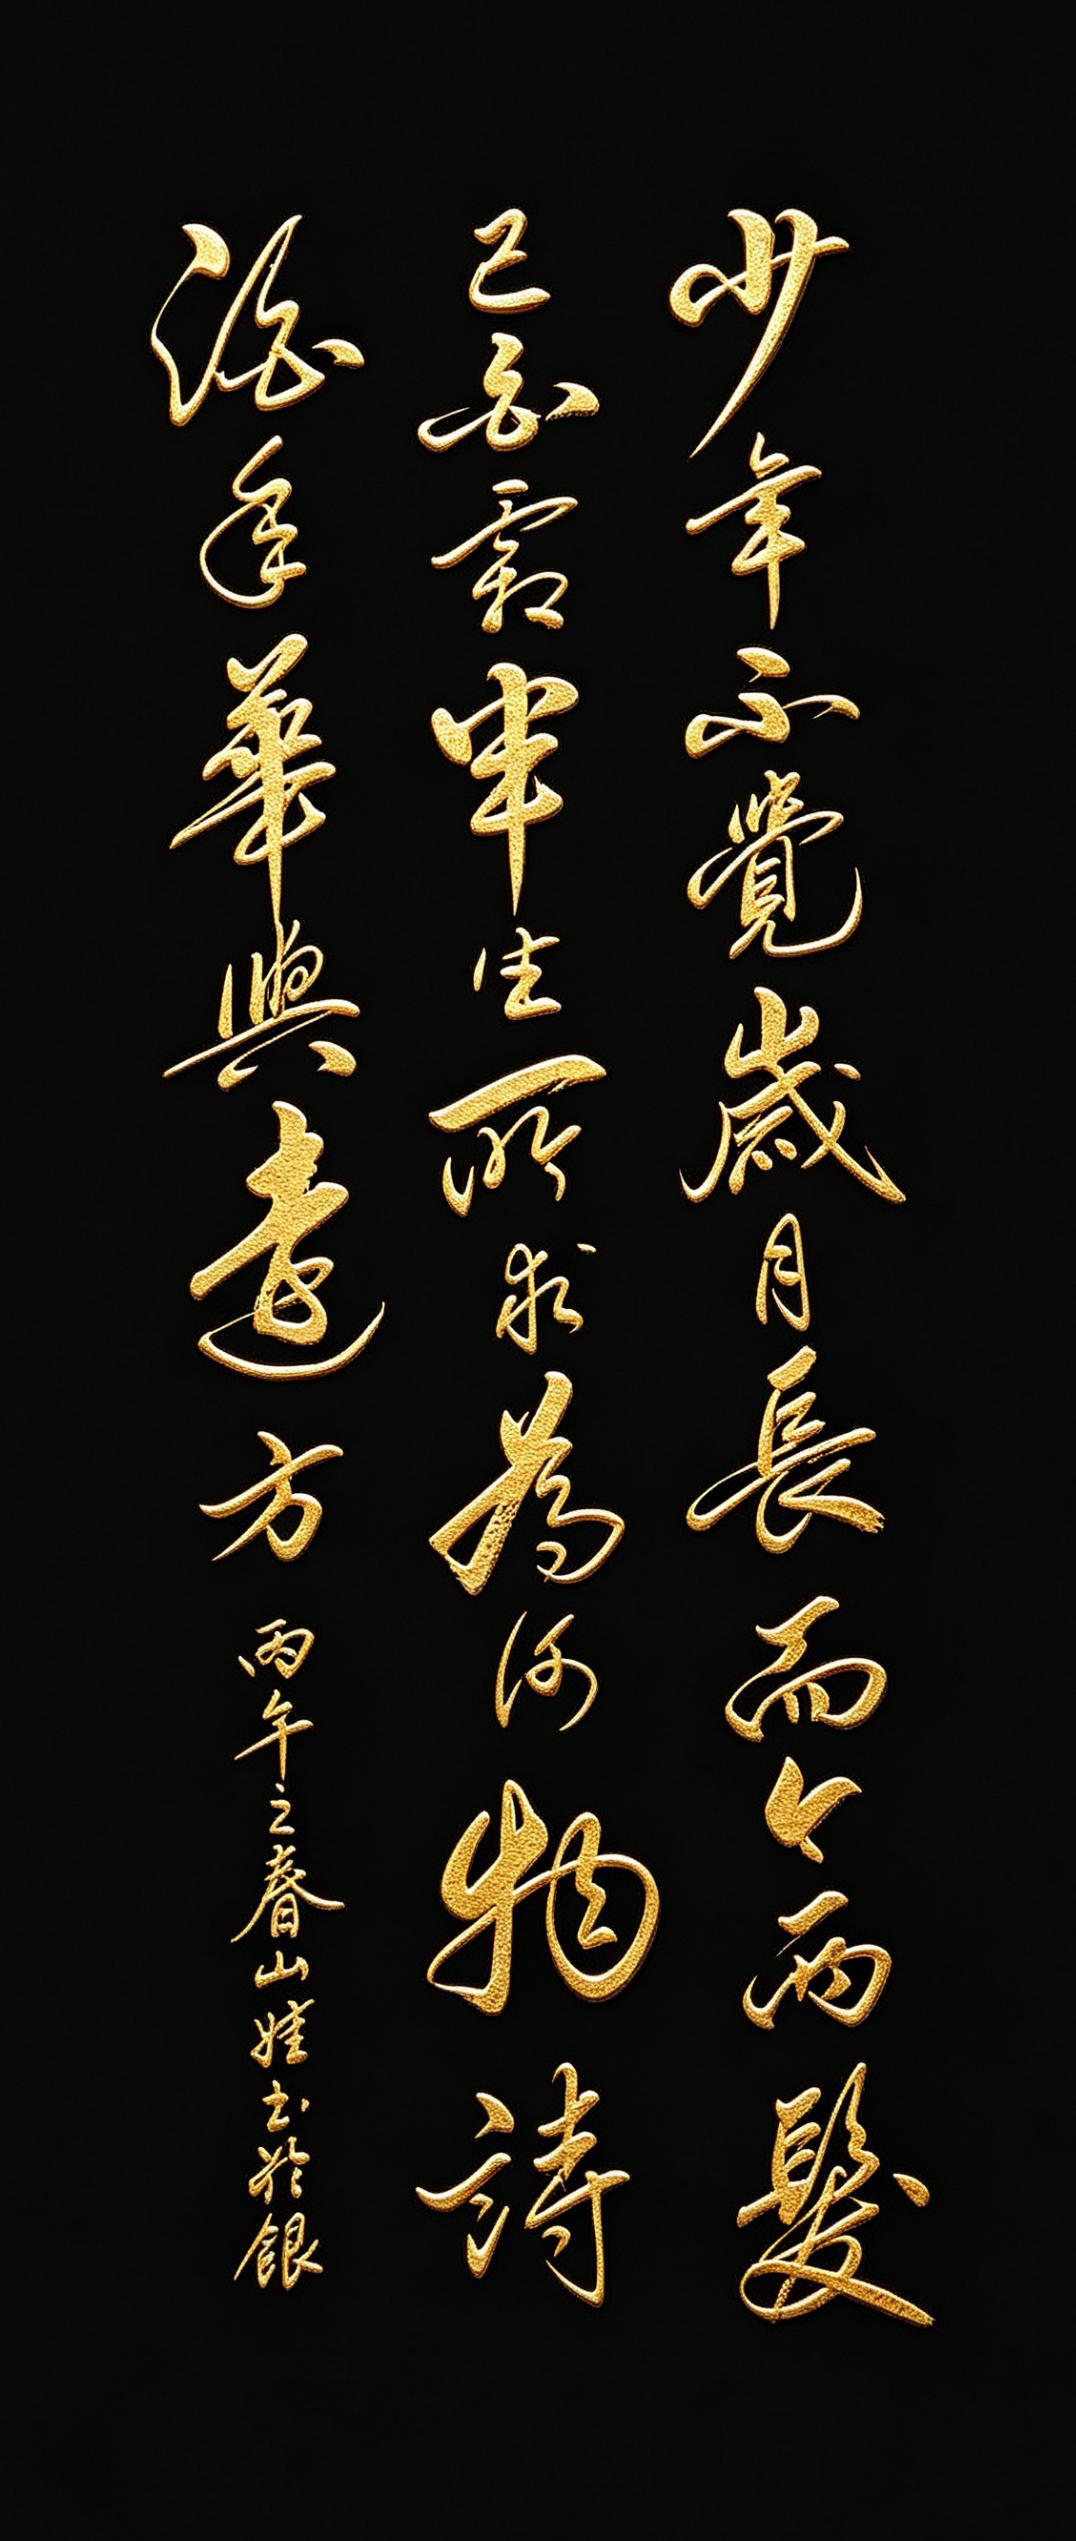 少年不覺歲月長而今兩鬢
已知霜半生所求為何物詩
酒年華與遠方
丙午之春山娃書於銀